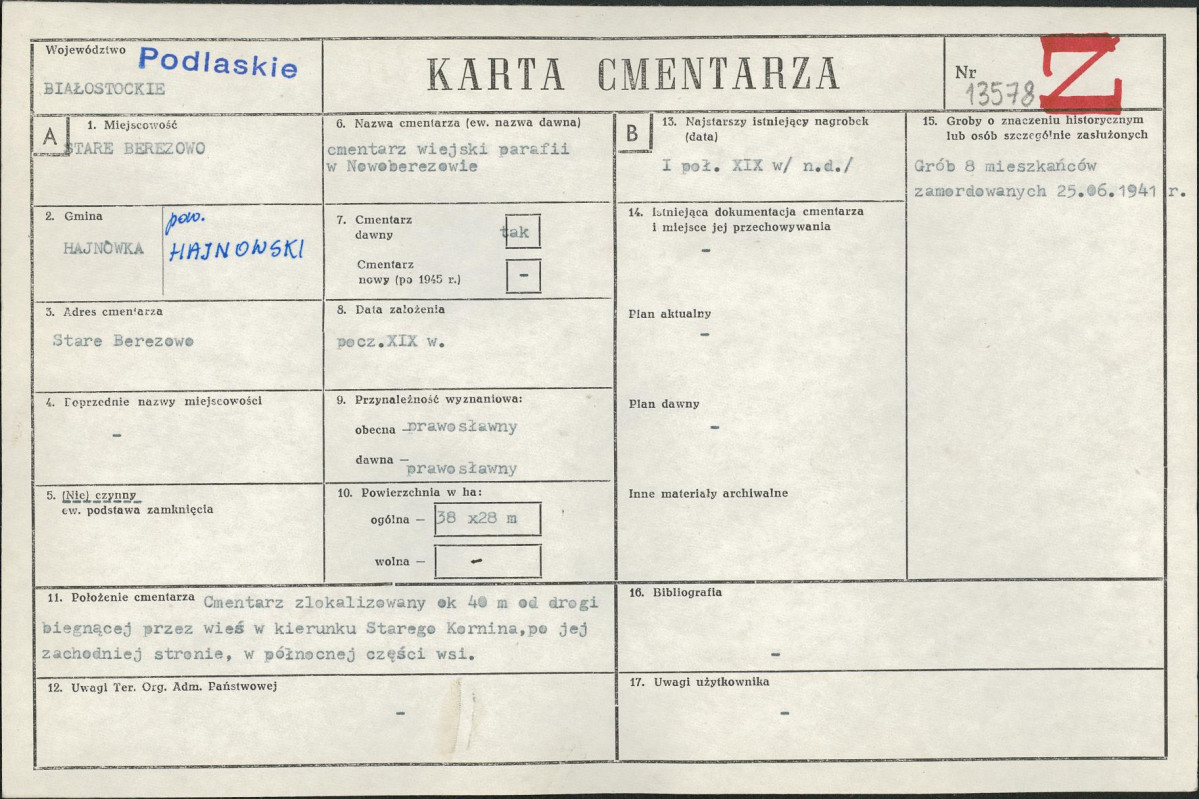 Województwo
Podlaskie
BIAŁOSTOCKIE
KARTA CMENTARZA
Nr
13578
Z
A
1. Miejscowość
STARE BEREZOWO
2. Gmina
HAJNÓWKA
pow.
HAJNOWSKI
3. Adres cmentarza
Stare Berezowo
4. Poprzednie nazwy miejscowości
-
5. (Nie) czynny
ew. podstawa zamknięcia
6. Nazwa cmentarza (ew. nazwa dawna)
cmentarz wiejski parafii
w Nowoberezowie
7. Cmentarz
dawny
tak
Cmentarz
nowy (po 1945 r.)
-
8. Data założenia
pocz.XIX w.
9. Przynależność wyznaniowa:
obecna – prawosławny
dawna –
prawosławny
10. Powierzchnia w ha:
ogólna – 38 x28 m
wolna – -
11. Położenie cmentarza Cmentarz zlokalizowany ok 40 m od drogi
biegnącej przez wieś w kierunku Starego Kornina,po jej
zachodniej stronie, w północnej części wsi.
12. Uwagi Ter. Org. Adm. Państwowej
-
B
13. Najstarszy istniejący nagrobek
(data)
I poł. XIX w/ n.d./
14. Istniejąca dokumentacja cmentarza
i miejsce jej przechowywania
-
Plan aktualny
-
Plan dawny
-
Inne materiały archiwalne
15. Groby o znaczeniu historycznym
lub osób szczególnie zasłużonych
Grób 8 mieszkańców
zamordowanych 25.06.1941 r.
16. Bibliografia
-
17. Uwagi użytkownika
-